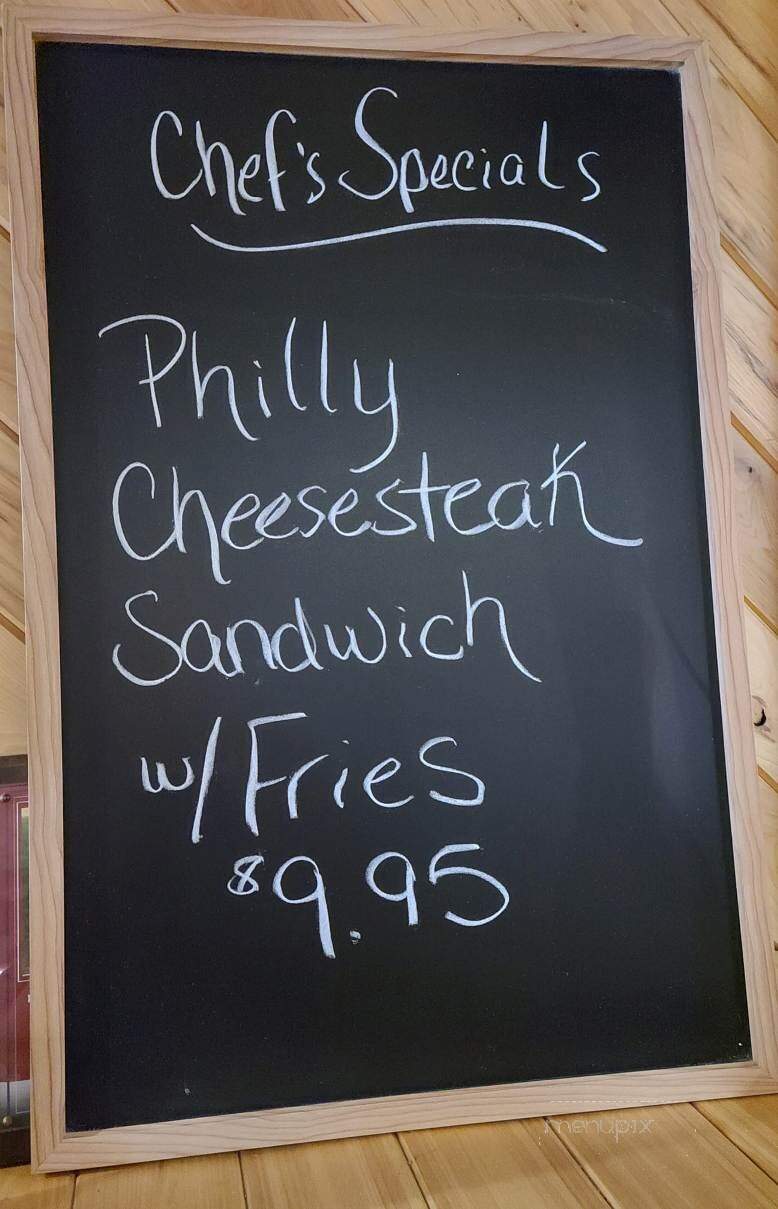 Chef's Specials
Philly
Cheesesteak
Sandwich
w/ Fries
$9.95
menupix